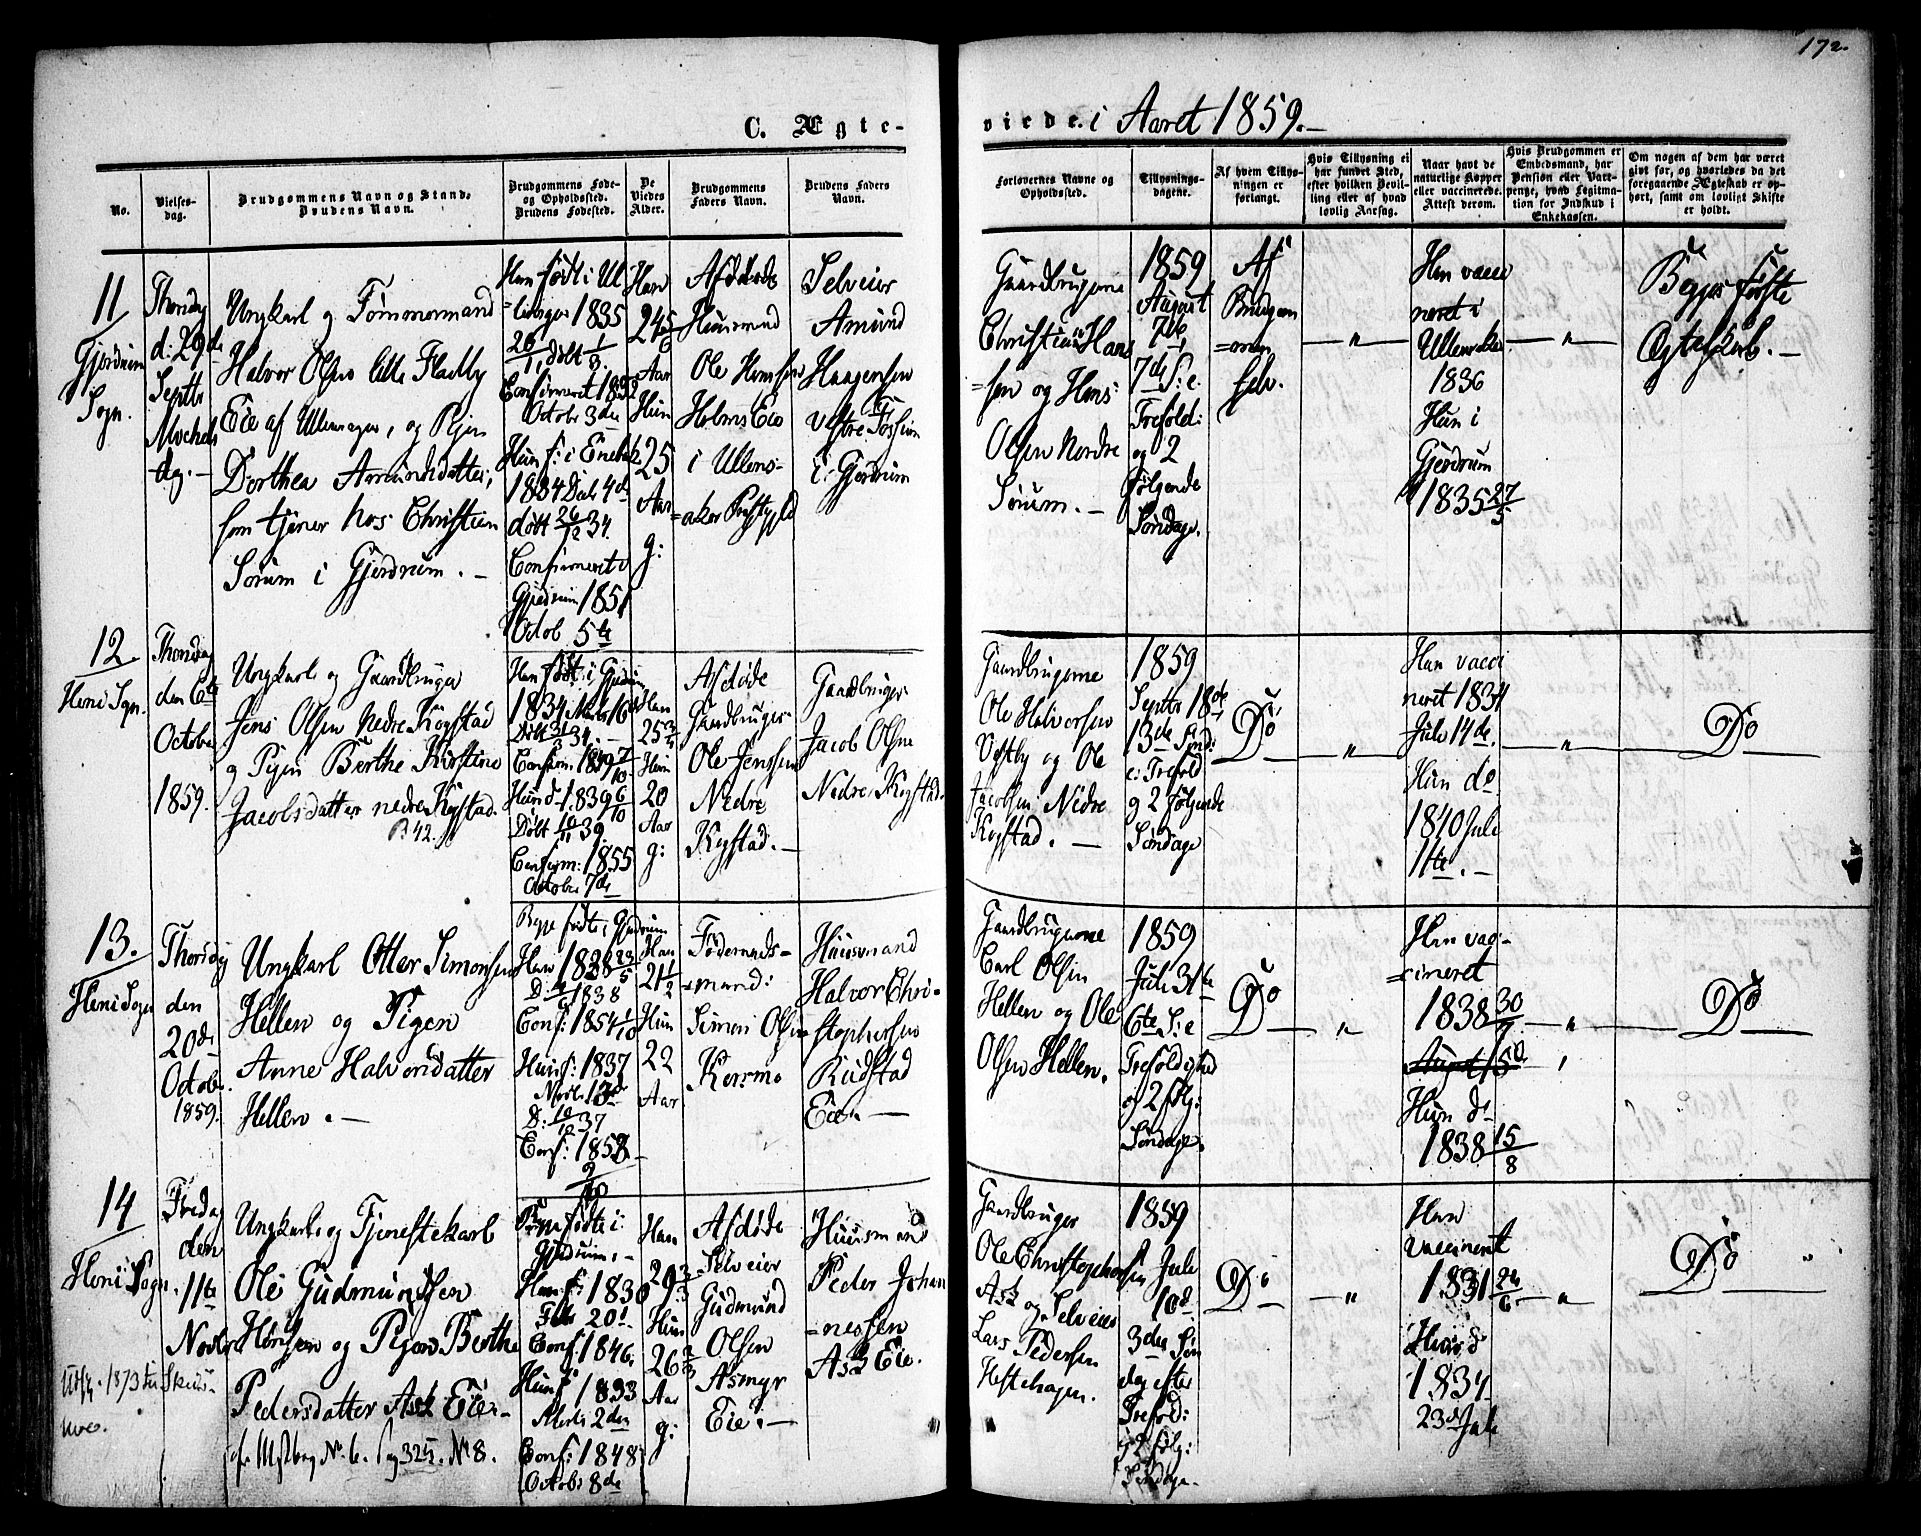 172.
C. Ægte-
viede. i Aaret 1859.-
No.
Vielses-
dag.
Brudgommens Navn og Stand.
Brudens Navn.
Brudgommens Føde-
og Opholdssted.
Brudens Fødested.
De
Viedes
Alder.
Brudgommens
Faders Navn.
Brudens Faders
Navn.
Forlovernes Navne og
Opholdssted.
Tillysnings-
dagene.
Af hvem Tillys-
ningen er
forlangt.
Hvis Tillysning ei
har fundet Sted,
efter hvilken Bevil-
ling eller af hvad
lovlig Aarsag.
Naar havt de
naturlige Kopper
eller vaccinerede.
Attest derom.
Hvis Brudgommen er
Embedsmand, har
Pension eller Vart-
penge, hvad Legitima-
tion for Indskud i
Enkekassen.
Om nogen af dem har været
givt før, og hvorledes da det
foregaaende Ægteskab er op-
hørt, samt om lovligt Skifte
er holdt.
11
Gjerdrum
Sogn.
Thorsdag
d: 29de
Septbr
Michels
dag.-
Ungkarl og Tømmermand
Halvor Olsen lille Fladby
Eie af Ullensager, og Pigen
Dorthea Amundsdatter,
som tjener hos Christian
Sørum i Gjerdrum. -
Han født i Ul
=lensager 1835
Confirmeret 1852
Octobr 3die
Hun f: i Enebak
1834 Decb 4de
døbt 26/12 34.
Confirmeret i
Gjerdrum 1851
Octob 5te
Han
24 5/6
Aar
Hun
25
Aar
g:
Afdøde
Huusmand
Ole Hansen
Holms Eie
i Ullens-
=aker Præstegjeld
Selveier
Amund
Haagensen
Vestre Fossum
i Gjerdrum
Gaardbrugerne
Christian Hans
=sen og Hans
Olsen Nordre
Sørum. -
1859
August
7de S: e:
Trefold:
og 2
følgende
Søndage.
Af
Brudgom
=men
selv.
- " -
Han vacci
neret i
Ullensaker
1836
Hun i
Gjerdrum
1835 27/5
- " -
Begges første
Ægteskab. -
12
Heni Sogn.
Thorsdag
den 6te
October
1859.
Ungkarl og Gaardbruger
Jens Olsen Nedre Kogstad
og Pigen Berthe Kirstine
Jacobsdatter nedre Kogstad.
B 42.
Han født i Gjerdrum
1834
Confirm 1849 7/10
Hun d- 1839 6/10
Døbt 10/11 39.
Confirm: 1855
October 7de
Han
25 3/4
Hun
20
Aar
g:
Afdøde
Gaardbruger
Ole Jenssen
Nedre
Kogstad. -
Gaardbruger
Jacob Olsen
Nedre Kogstad.
Gaardbrugerne
Ole Halvorsen
Vestby og Ole
Jacobsen Nedre
Kogstad. -
1859
Septbr 18de
13de Sønd:
e: Trefold
og 2 følgende
Søndage
Do
"
Han vacci
neret 1834
Juli 14de.
Hun do
1840 Juli
1te. -
"
Do
13.
Heni Sogn
Thorsdag
den
20de
Octobr.
1859.
Ungkarl Otter Simonsen
Hellen og Pigen
Anne Halvorsdatter
Hellen. -
Begge født i Gjerdrum
Han 1838 23/5
Conf: 1854 1/10
Hun f: 1837
D: 10/12 37
Han
21 1/2
Hun
22
Aar
Føderaads-
=mand:
Simen Olsen
Korsmo
Huusmand
Halvor Chri-
stophersen
Rudstad
Eie. -
Gaardbrugerne
Carl Olsen
Hellen og Ole
Olsen Hellen.
1859
Juli 31te
6te S: e
Trefoldighed
og 2 følg:
Søndage.
Do
"
Han vac-
=cineret
1838 30/7
August 15
Hun d-
1838 15/8
"
Do
14
Heni Sogn.
Fredag
den
11te
Novbr
Ungkarl og Tjenestekarl
Ole Gudmundsen
og Pigen Berthe
Pedersdatter Ask Eie.-
Begge fødte i
Gjerdrum. -
Han f: 1830
Febr 20
Conf: 1846.
Hun f 1833
Marts 2den
Conf: 1848
Octobr 8de
Han
29 2/3
Hun
26 2/3
Aar
g:
Afdøde
Selveier
Gudmund
Olsen
Asmyr
Eie. -
Huusmand
Peder Johan
=nessen
Ask Eie.
Gaardbruger
Ole Christophersen
Ask og Selveier
Lars Pedersen
Hestehagen.
1859
Juli
10de
3die Søn
dag efter
Trefold:
og 2 følg:
Søndage.
Do
"
Han
vaccineret
1831 24/6
Hun d-
1834
23d Juli
"
Do